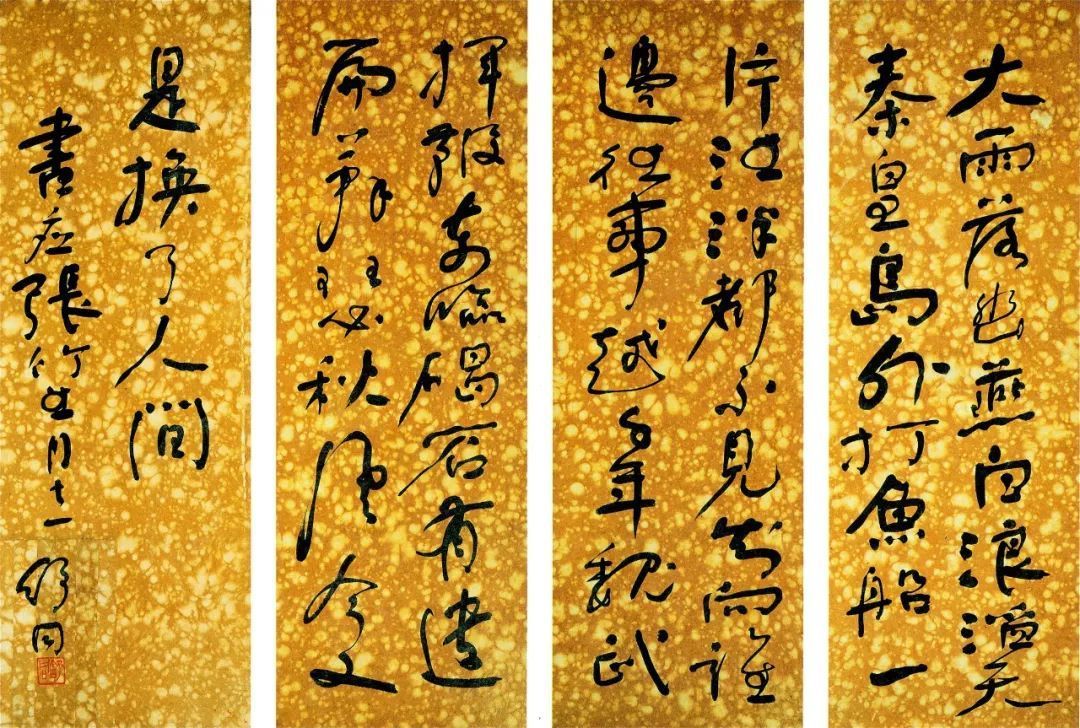 大雨落幽燕白浪滔天
秦皇島外打魚船一
片汪洋都不見知向誰
邊往事越千年魏武
揮鞭東臨碣石有遺
篇蕭瑟秋風今又
是換了人間
書应張竹生同志 舒同